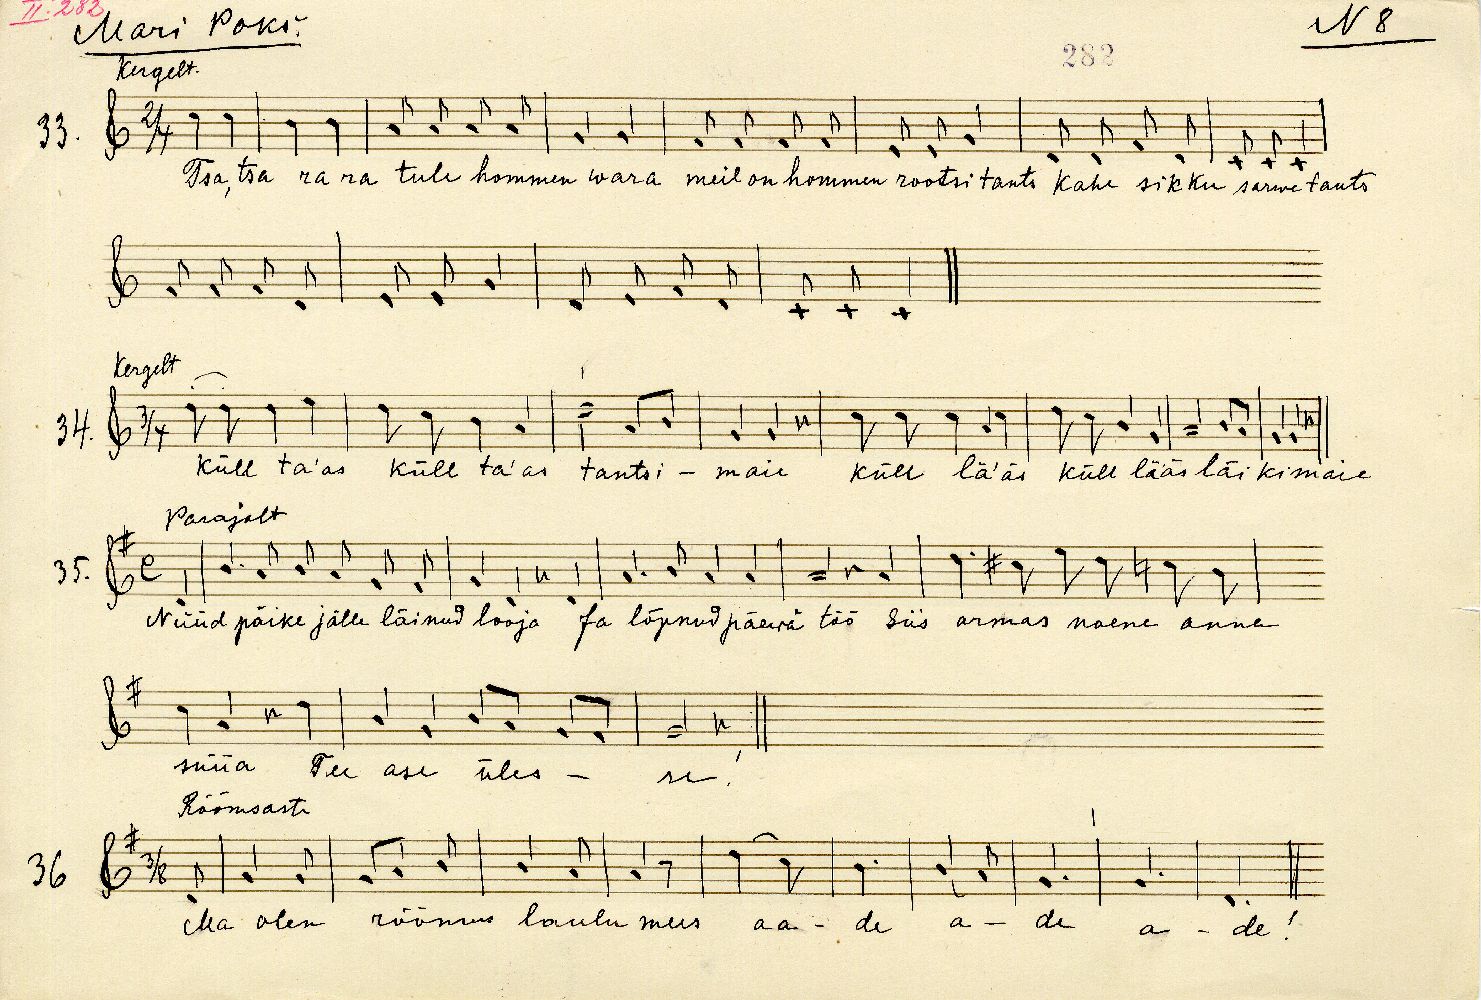 II: 282
Mari Poks.
N 8
282
Kergelt.
33. 2/4
Tsa, tsa ra ra tule hommen wara meil on hommen rootsi tants kahe sikku sarwe tants
Kergelt
34. 3/4
Küll ta'as küll ta'as tantsi - maie küll lä'äs küll lääs läi kimaie
Parajalt
35. C
Nüüd päike jälle läinud looja Ja lõpnud päewa töö Siis armas naene anna
süüa Tee ase üles - se!
Rõõmsaste
36 3/8
Ma olen rõõmus laulu mees aa - de a - de a - de!